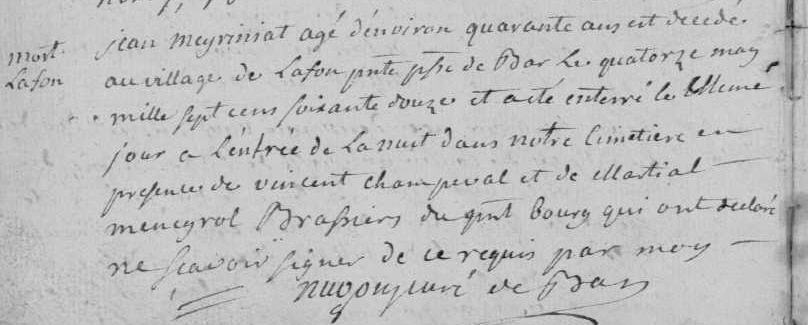 mort
Lafon
jean meyriniat agé denviron quarante ans est decedé
au village de Lafon pnte psse de Bar Le quatorze may
mille sept cens soixante douze et a eté enterré le meme
jour a Lentrée de La nuit dans notre Cimetiere en
presence de vincent champeval et de Martial
meneyrol Brassiers du pnt bourg qui ont declaré
ne scavoir signer de ce requis par moy
curé de Bar